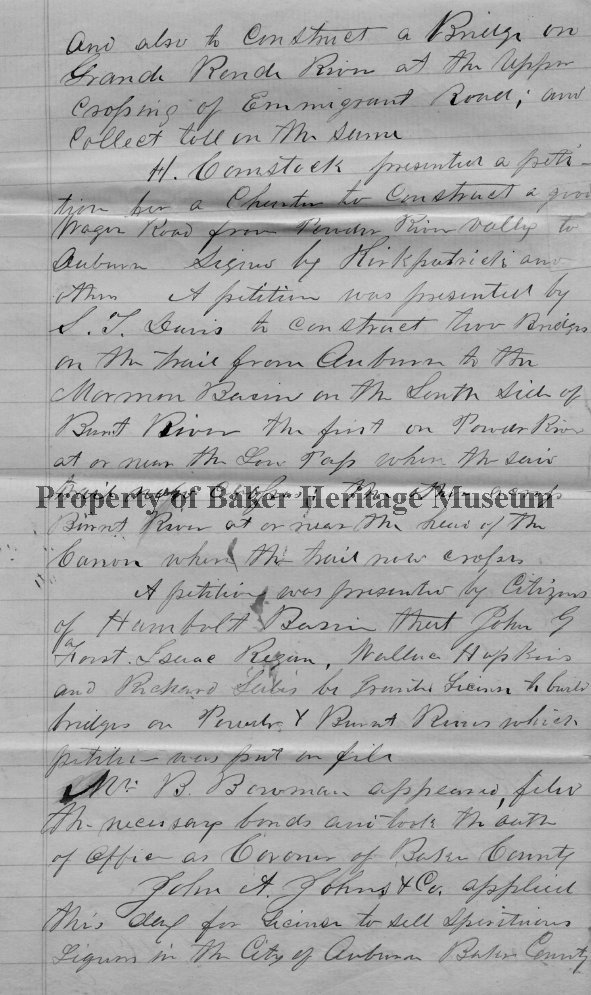 And also to Construct a Bridge on
Grande Ronde River at the Upper
Crossing of Emmigrant Road; and
Collect toll on the same
H. Comstock presented a peti-
tion for a Charter to Construct a good
Wagon Road from Powder River vally to
Auburn Signed by Kirkpatrick and
others A petition was presented by
S. T. Davis to construct two Bridges
on the trail from Auburn to the
Mormon Basin on the South Side of
Burnt River the first on Powder River
at or near the Low Pass where the said
trail now
Property of Baker Heritage Museum
Burnt River at or near the head of the
Canon where the trail now crosses
A petition was presented by Citizens
of Humbolt Basin that John G
Forst. Isaac Regan, Wallace Hopkins
and Richard be granted License to build
bridges on Powder & Burnt Rivers which
petition was put on file
Mr. B. Bowman appeared, filed
the necessary bonds and took the oath
of office as Coroner of Baker County
John A. Johns & Co. applied
this day for License to sell Spirituous
Liquors in the City of Auburn Baker County